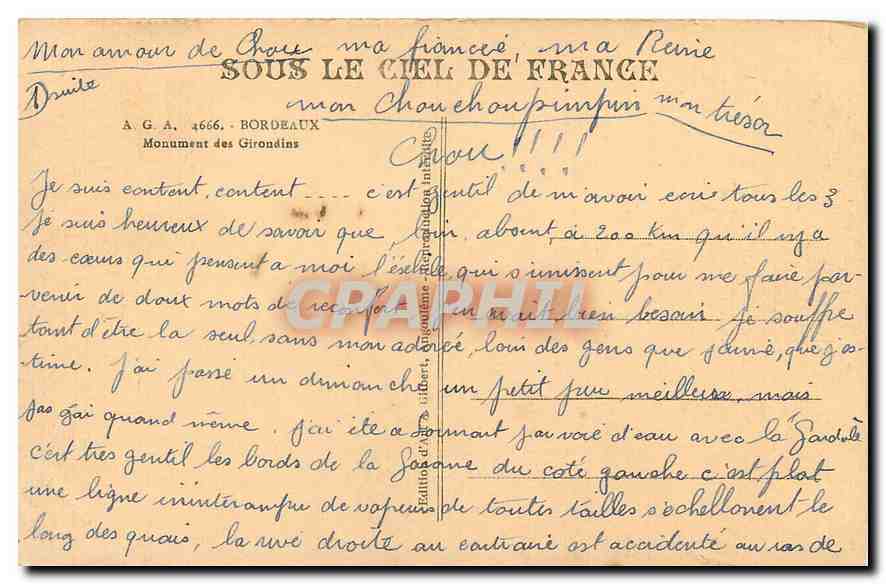 Mon amour de Chou ma fiancée, ma Reine
SOUS LE CIEL DE FRANCE
1) suite
mon Chouchoupimpin mon trésor
A. G. A. 4666. - BORDEAUX
Monument des Girondins
Chou!!!!
Je suis content, content .... c'est gentil de m'avoir ecrit tous les 3
Je suis heureux de savoir que, loin, absent, à 200 Km qu'il y a
des cœurs qui pensent a moi qui s'unissent pour me faire par-
venir de doux mots de reconfort, j'en avait bien besoin je souffre
tant d'être la seul, sans mon adorée, loin des gens que j'aime, que j'es-
time. J'ai passé un dimanche un petit peu meilleur, mais
pas gai quand même. J'ai été a par voie d'eau avec la "Gondole
c'est très gentil les bords de la Garonne du coté gauche c'est plat
une ligne ininterompue de vapeurs de toutes tailles s'echellonent le
long des quais, la rive droite au contraire est accidenté au ras de
Edition d'Art Gilbert, Angoulême - Reproduction Interdite
CARAPHIL